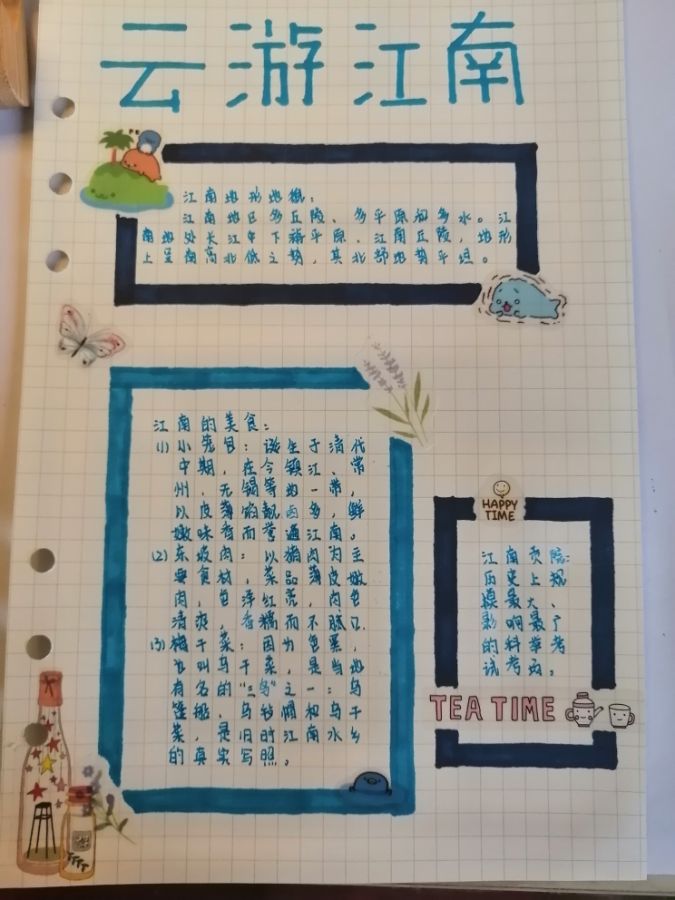 云游江南
江南地形地貌：
江南地区多丘陵、多平原和多水。江
南地处长江中下游平原、江南丘陵，地形
上呈南高北低之势，其北部地势平坦。
江南的美食：
(1) 小笼包：诞生于清代
中期，在今镇江、常
州，无锡等地一带，
以皮薄馅靓肉多，鲜
嫩味香而誉通江南。
(2) 东坡肉：以猪肉为主
要食材，菜品薄皮嫩
肉，色泽红亮，肉色
清爽，香糯而不腻口
(3) 梅干菜：因为色黑，
也叫乌干菜，是当地
有名的"三乌"之一：乌
篷船，乌毡帽和乌干
菜，是旧时江南水乡
的真实写照。
HAPPY
TIME
江南贡院：
历史上规
模最大、
影响最广
的科举考
试考场。
TEA TIME